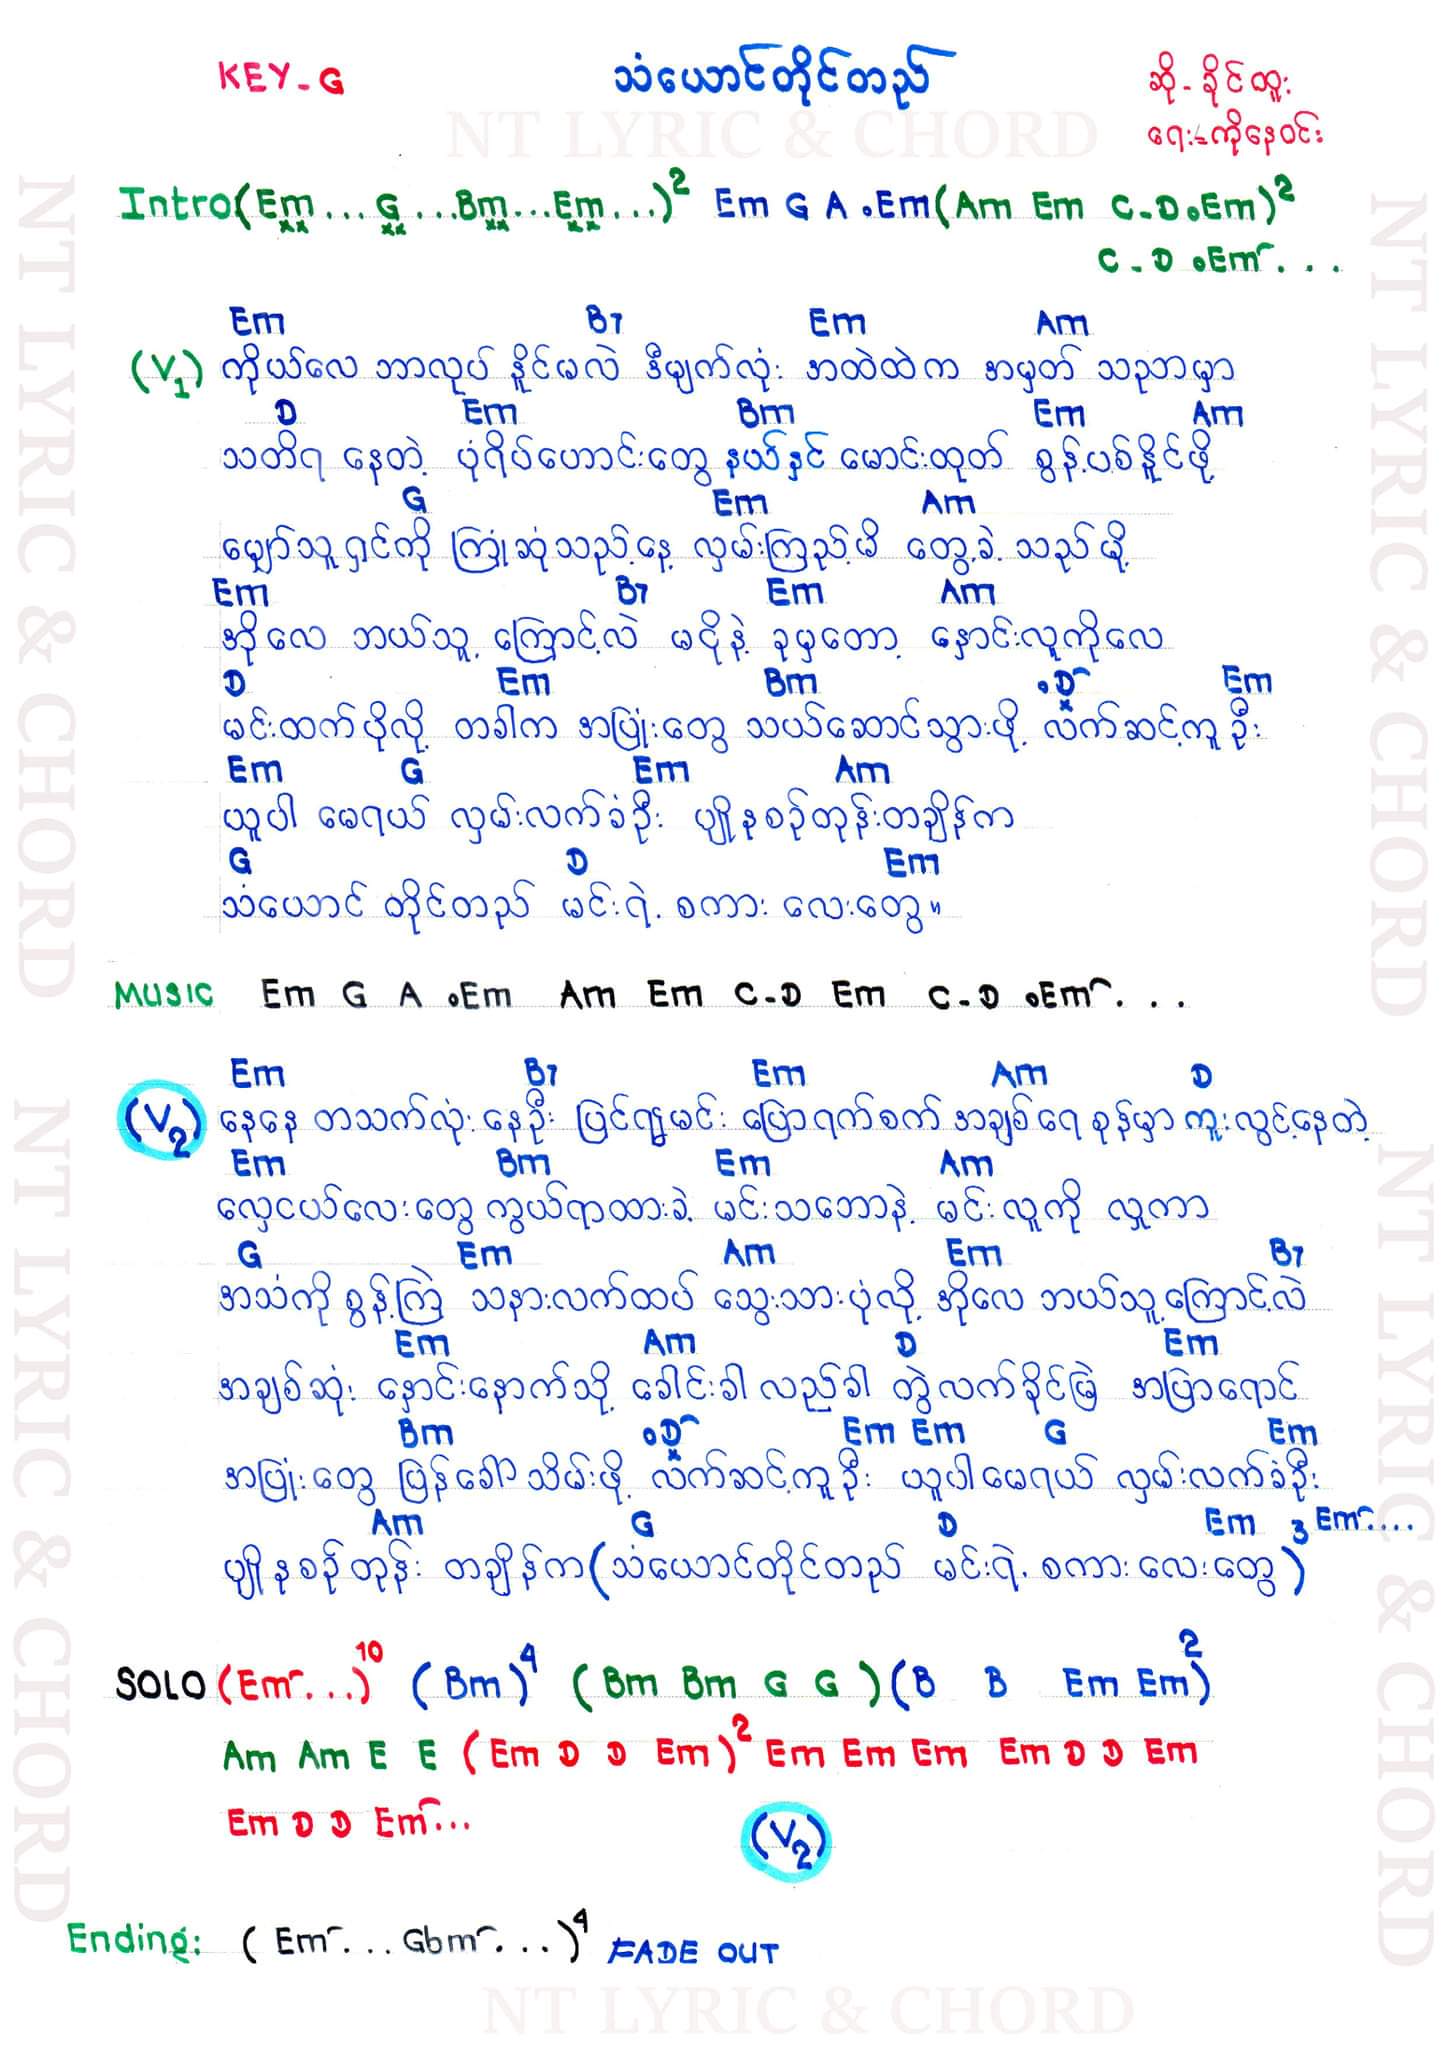 KEY-G သံယောင်တိုင်တည် ဆို-ခိုင်ထူး
ရေး-ကိုနေဝင်း
NT LYRIC & CHORD
Intro(Em...G...Bm...Em...)2 Em G A .Em(Am Em C-D.Em)2
C-D.Em...
Em B7 Em Am
(V1) ကိုယ်လေ ဘာလုပ် နိူင်မလဲ ဒီမျက်လုံး အထဲထဲက အမှတ် သညာမှာ
D Em Bm Em Am
သတိရ နေတဲ့ ပုံရိပ်ဟောင်းတွေ နယ်နှင် မောင်းထုတ် စွန့်ပစ်နိူင်ဖို့
G Em Am
မျှော်သူ ရှင်ကို ကြုံဆုံသည့်နေ့ လှမ်းကြည့်မိ တွေ့ခဲ့ သည်မို့
Em B7 Em Am
အိုလေ ဘယ်သူ့ ကြောင့်လဲ မငိုနဲ့ ခုမှတော့ နှောင်းလူကိုလေ
D Em Bm .D Em
မင်းထက်ပိုလို့ တခါက အပြုံးတွေ သယ်ဆောင်သွားဖို့ လက်ဆင့်ကူ ဦး
Em G Em Am
ယူပါ မေရယ် လှမ်းလက်ခံဦး ပျိုနုစဉ်တုန်းတချိန်က
G D Em
သံယောင် တိုင်တည် မင်းရဲ့ စကား လေးတွေ။
MUSIC Em G A .Em Am Em C-D Em C-D .Em...
Em B7 Em Am D
(V2) နေနေ တသက်လုံး နေဦး ပြင်ရှုမင်း ပြောရက်စက် အချစ်ရေ စုန်မှာ ကူးလွင့်နေတဲ့
Em Bm Em Am
လှေငယ်လေးတွေ ကွယ်ရာထားခဲ့ မင်းသဘောနဲ့ မင်းလူကို လှုကာ
G Em Am Em B7
အသံကို စွန့်ကြဲ သနားလက်ထပ် သွေးသားပုံလို့ အိုလေ ဘယ်သူ့ကြောင့်လဲ
Em Am D Em
အချစ်ဆုံး နှောင်းနောက်သို့ ခေါင်းခါ လည်ခါ တွဲလက်ခိုင်မြဲ အပြာရောင်
Bm .D Em Em G Em
အပြုံးတွေ ပြန်ခေါ် သိမ်းဖို့ လက်ဆင့်ကူဦး ယူပါမေရယ် လှမ်းလက်ခံဦး
Am G D Em 3 Em....
ပျိုနုစဉ်တုန်း တချိန်က(သံယောင်တိုင်တည် မင်းရဲ့ စကားလေးတွေ)
SOLO (Em...)10 (Bm)4 (Bm Bm G G)(B B Em Em)2
Am Am E E (Em D D Em)2 Em Em Em Em D D Em
Em D D Em... (V2)
Ending: (Em...Gbm...)4 FADE OUT
NT LYRIC & CHORD
NT LYRIC & CHORD NT LYRIC & CHORD
NT LYRIC & CHORD NT LYRIC & CHORD